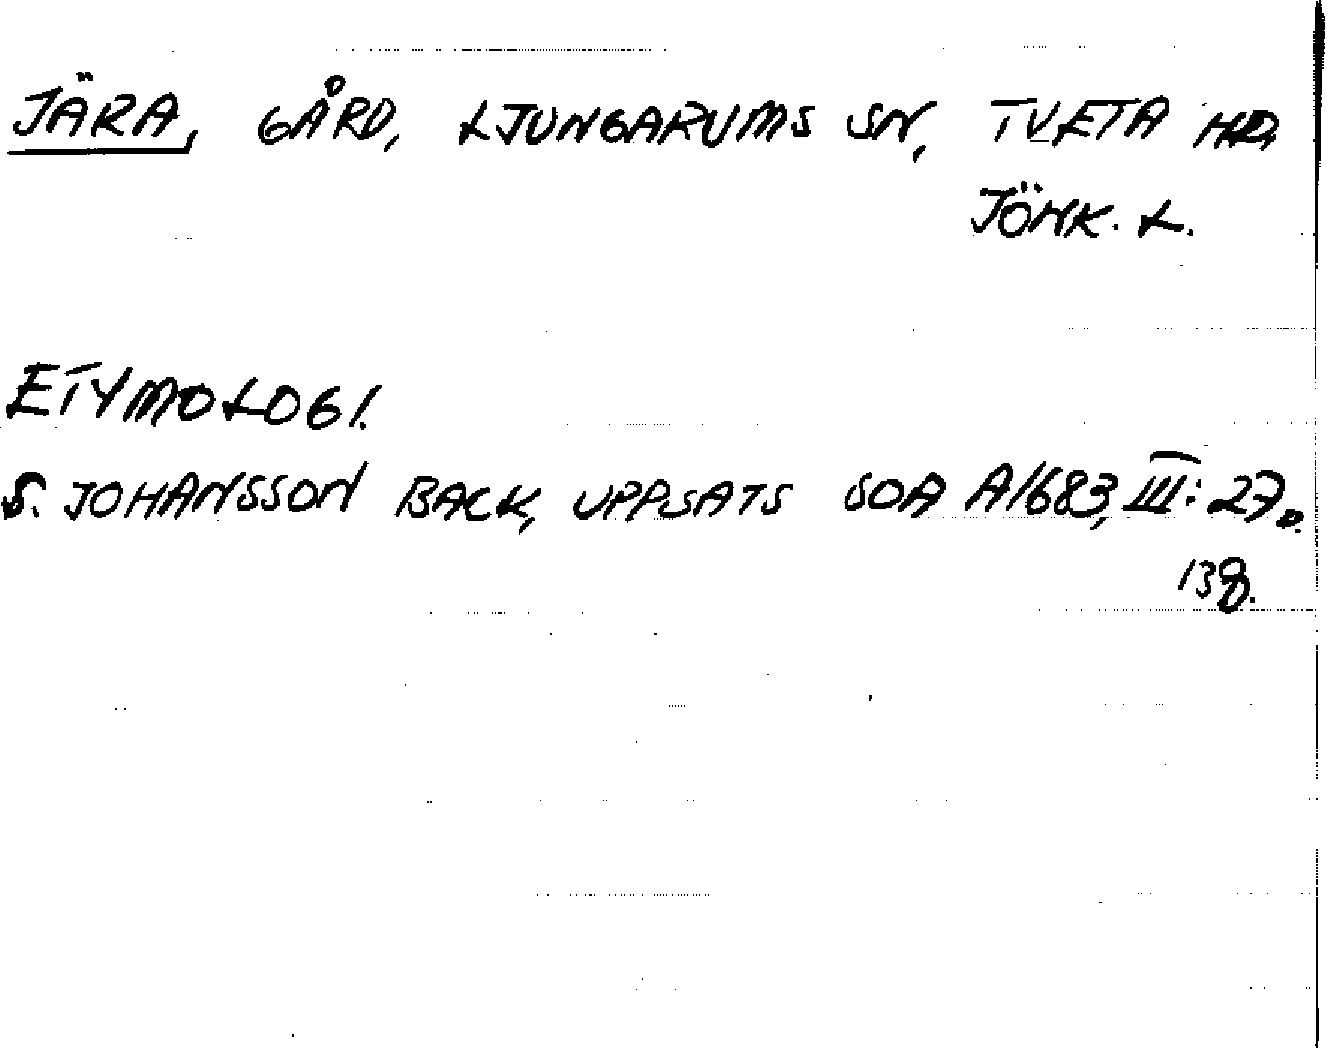 JÄRA, GÅRD, LJUNGARUMS SN, TVETA HD,
JÖNK. L.
ETYMOLOGI.
S. JOHANSSON BACK, UPPSATS SOA A1683, III: 27.
138.